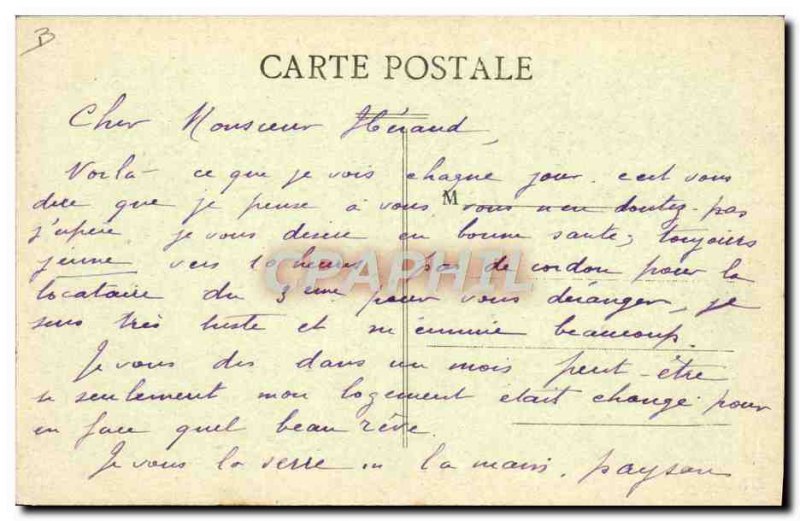 B
CARTE POSTALE
Cher Monsieur Héraud,
Voilà ce que je vois chaque jour. c'est vous
dire que je pense à vous M vous n'en doutez pas
j'espère je vous désire en bonne santé, toujours
jeune vers 10 heures pas de cordon pour la
locataire du 3ème pour vous déranger, je
suis très triste et m'ennuie beaucoup.
Je vous dis dans un mois peut-être
si seulement mon logement était changé pour
en face quel beau rêve.
Je vous la serre la main.
CPAPHIL